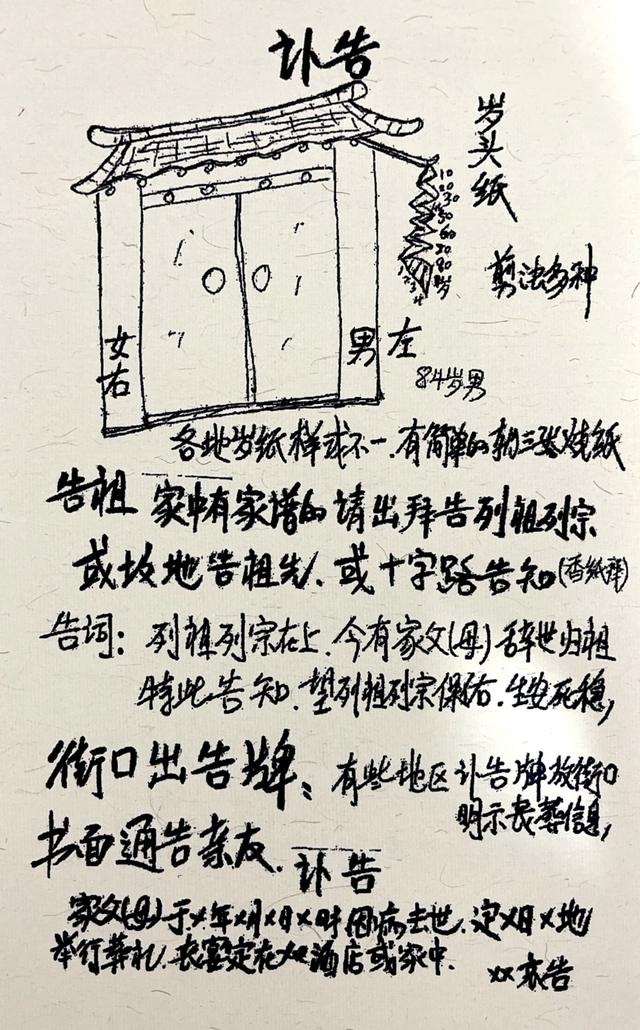 讣告
岁头纸
10
20
30
50
60
70
80
剪法多种
女右
男左
84岁男
各地岁纸样式不一.有简单的朝三张烧纸
告祖 家中有家谱的请出拜告列祖列宗
或坟地告祖先、或十字路告知(香纸拜)
告词：列祖列宗在上.今有家父(母)辞世归祖
特此告知.望列祖列宗保佑.生安死稳,
街口出告牌、有些地区讣告牌放街口
明示丧葬信息,
书面通告亲友.
讣告
家父(母)于X年X月X日X时因病去世.定X日X地
举行葬礼.丧宴定在XX酒店或家中.
XX哀告